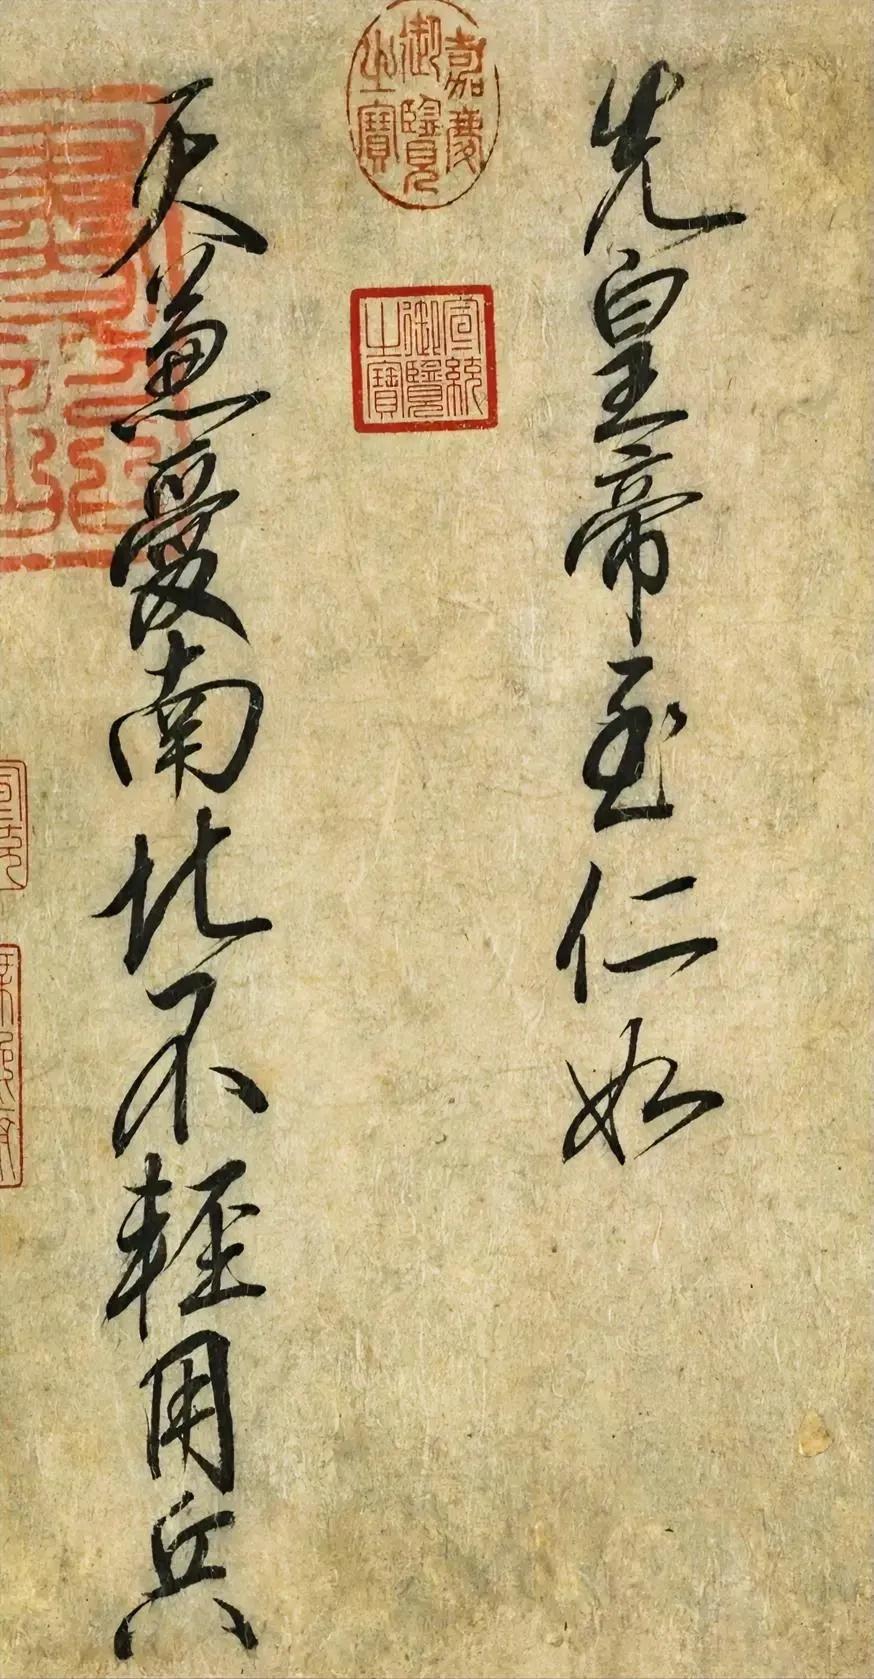 先皇帝至仁如
天兼愛南北不輕用兵
嘉慶御覽之寶
宣統御覽之寶